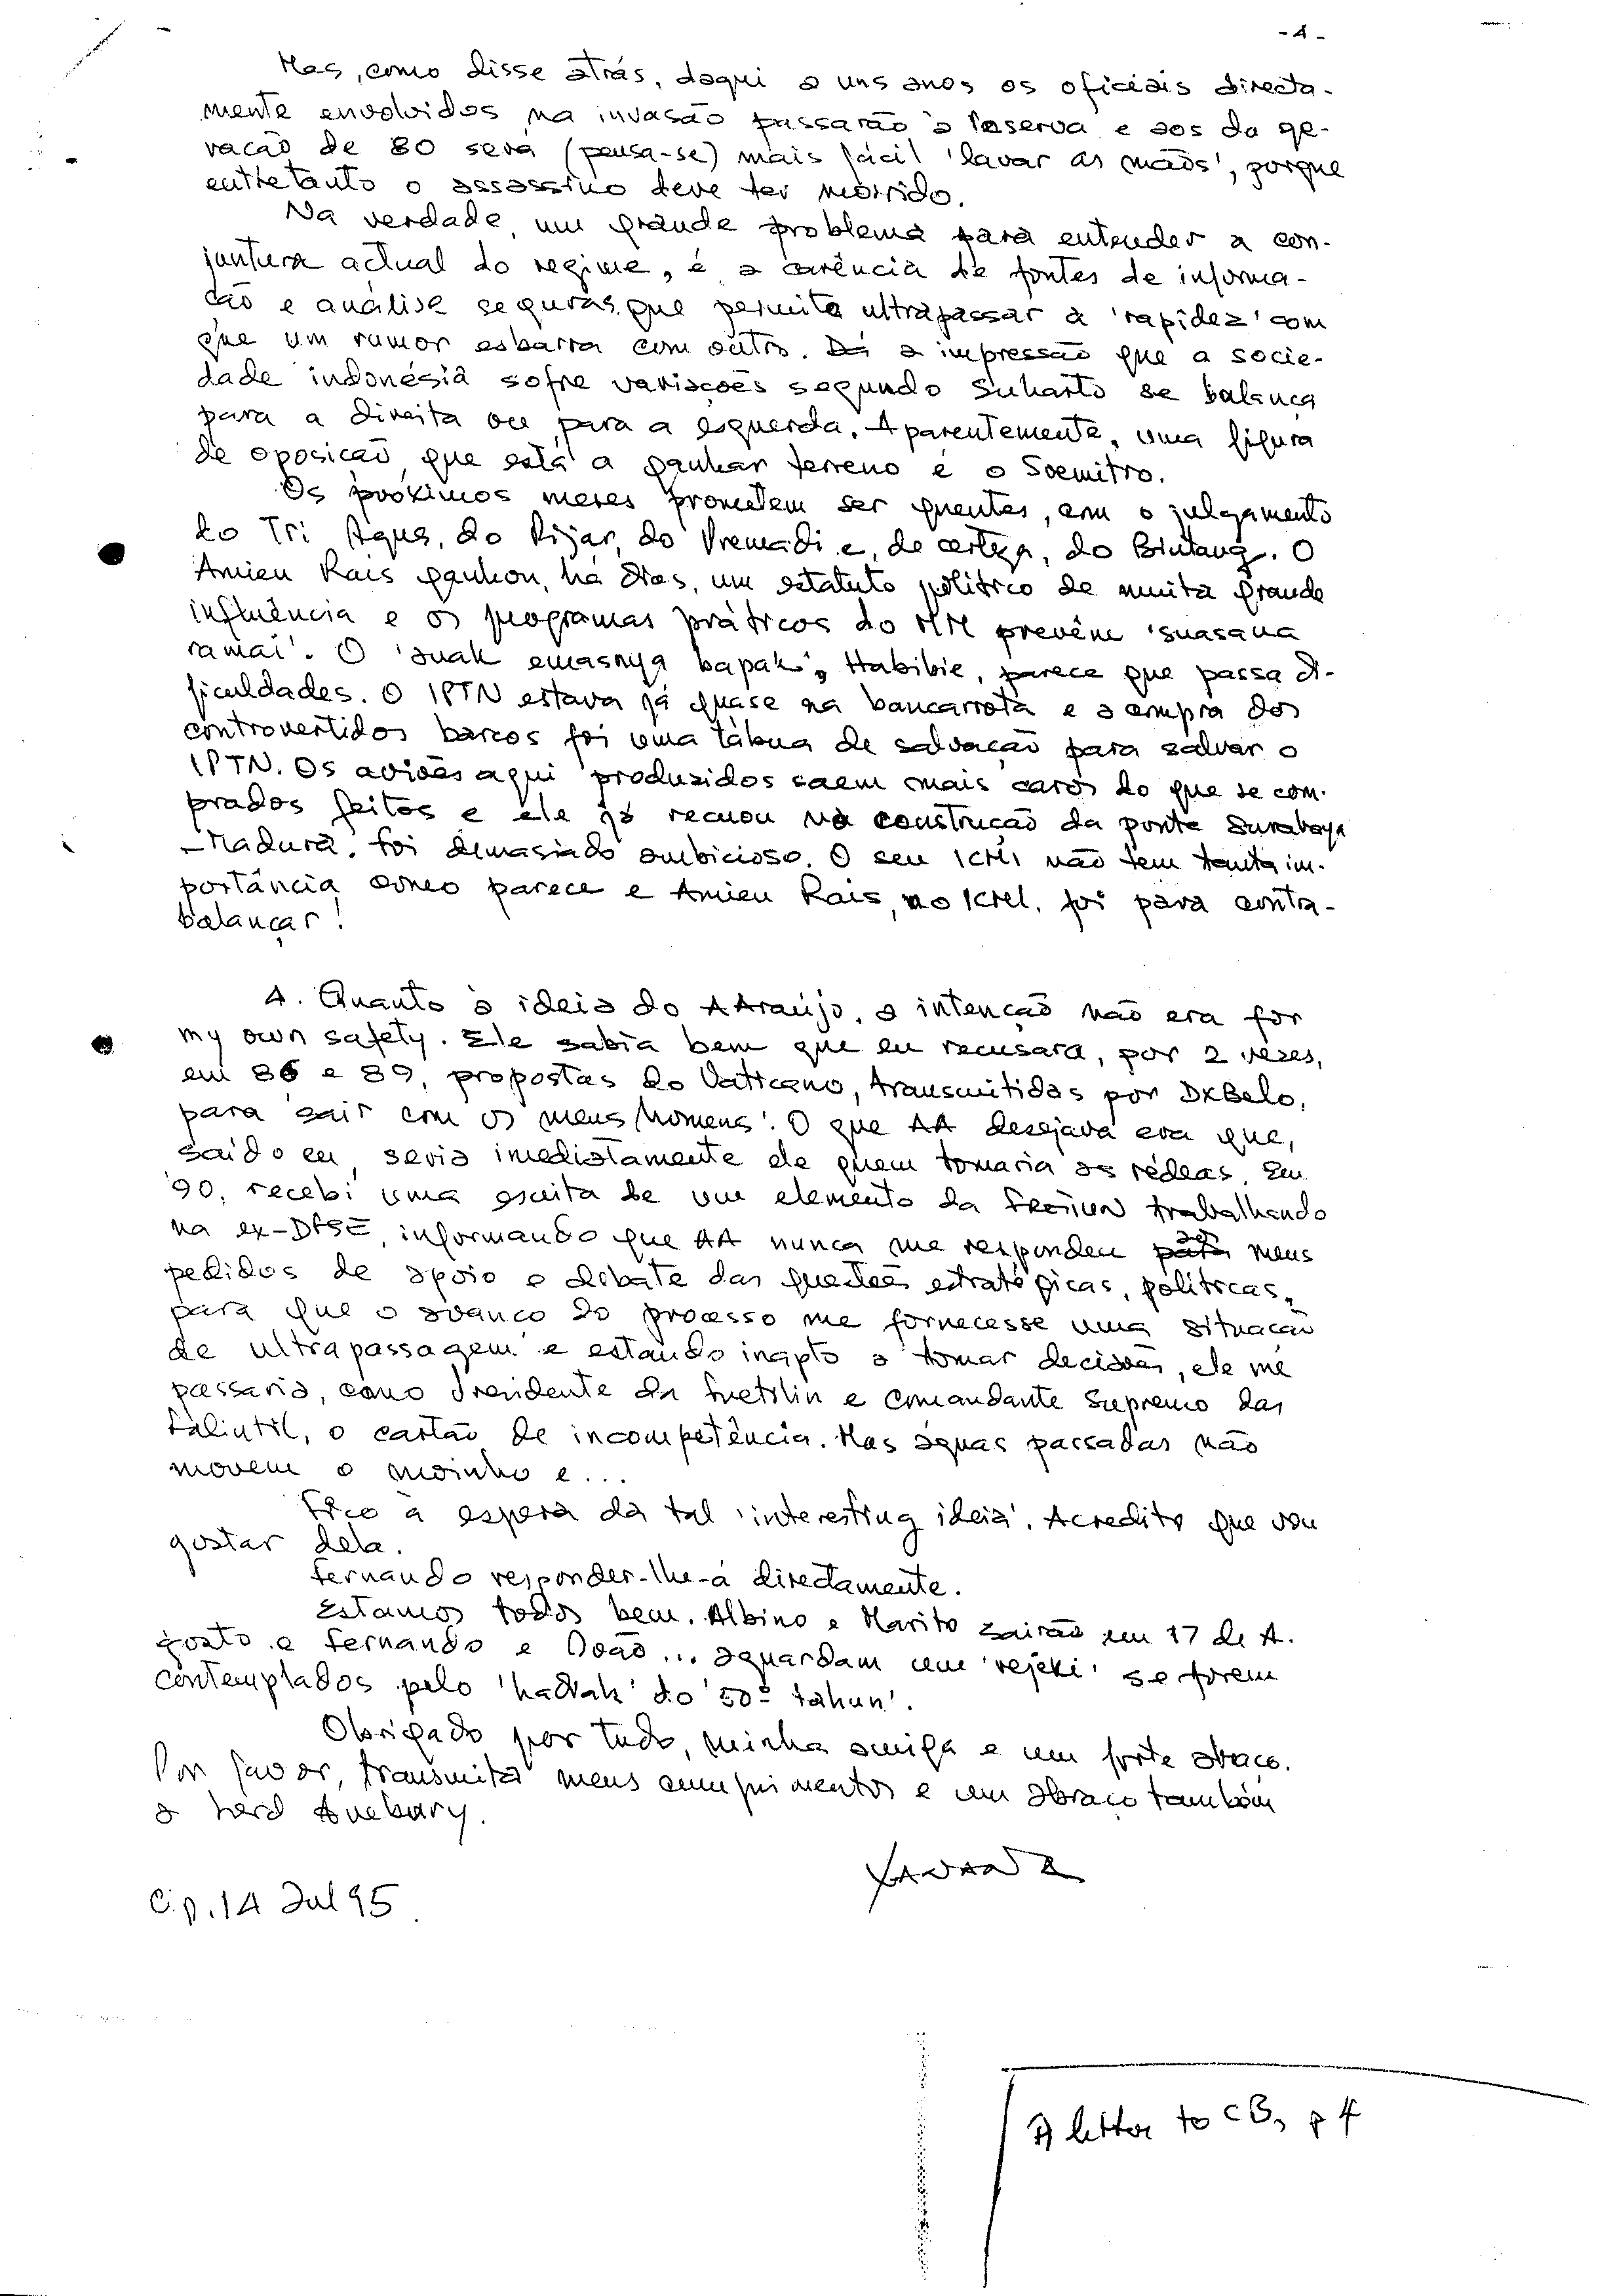 - 4 -
Mas, como disse atrás, daqui a uns anos os oficiais directa-
mente envolvidos na invasão passarão à reserva e aos da ge-
ração de 80 será (pensa-se) mais fácil 'lavar as mãos', porque
entretanto o assassino deve ter morrido.
Na verdade, um grande problema para entender a con-
juntura actual do regime, é a carência de fontes de informa-
ção e análise seguras que permita ultrapassar a 'rapidez' com
que um rumor esbarra com outro. Dá a impressão que a socie-
dade indonésia sofre variações segundo Suharto se balança
para a direita ou para a esquerda. Aparentemente, uma figura
de oposição que está a ganhar terreno é o Soemitro.
Os próximos meses prometem ser quentes, com o julgamento
do Tri Agus, do Pijar, do Premadi e, de certeza, do Bintang. O
Amien Rais ganhou, há dias, um estatuto político de muita grande
influência e os programas práticos do MM prevêm 'suasana
ramai'. O 'anak emasnya bapak', Habibie, parece que passa di-
ficuldades. O IPTN estava já quase na bancarrota e a compra dos
controvertidos barcos foi uma tábua de salvação para salvar o
IPTN. Os aviões aqui produzidos saem mais caros do que se com-
prados feitos e ele já recuou na construção da ponte Surabaya
-Madura. Foi demasiado ambicioso. O seu ICMI não tem tanta im-
portância como parece e Amien Rais, no ICMI, foi para contra-
balançar!
4. Quanto à ideia do AAraújo, a intenção não era for
my own safety. Ele sabia bem que eu recusara, por 2 vezes,
em 86 e 89, propostas do Vaticano, transmitidas por DXBelo,
para 'sair com os meus homens'. O que AA desejava era que,
saído eu, seria imediatamente ele quem tomaria as rédeas. Em
'90, recebi uma escrita de um elemento da Fretilin trabalhando
na ex-DFSE, informando que AA nunca me respondeu aos meus
pedidos de apoio e debate das questões estratégicas, políticas,
para que o avanço do processo me fornecesse uma situação
de ultrapassagem e estando inapto a tomar decisões, ele me
passaria, como Presidente da Fretilin e Comandante Supremo das
Falintil, o cartão de incompetência. Mas águas passadas não
movem o moinho e...
Fico à espera da tal 'interesting ideia'. Acredito que vou
gostar dela.
Fernando responder-lhe-á directamente.
Estamos todos bem. Albino e Marito sairão em 17 de A-
gosto e Fernando e João ... aguardam um 'rejeki' se forem
contemplados pelo 'hadiah' do '50º tahun'.
Obrigado por tudo, minha amiga e um forte abraço.
Por favor, transmita meus cumprimentos e um abraço também
a Lord Avebury.
XANANA
Cip. 14 Jul 95
letter to CB, p 4